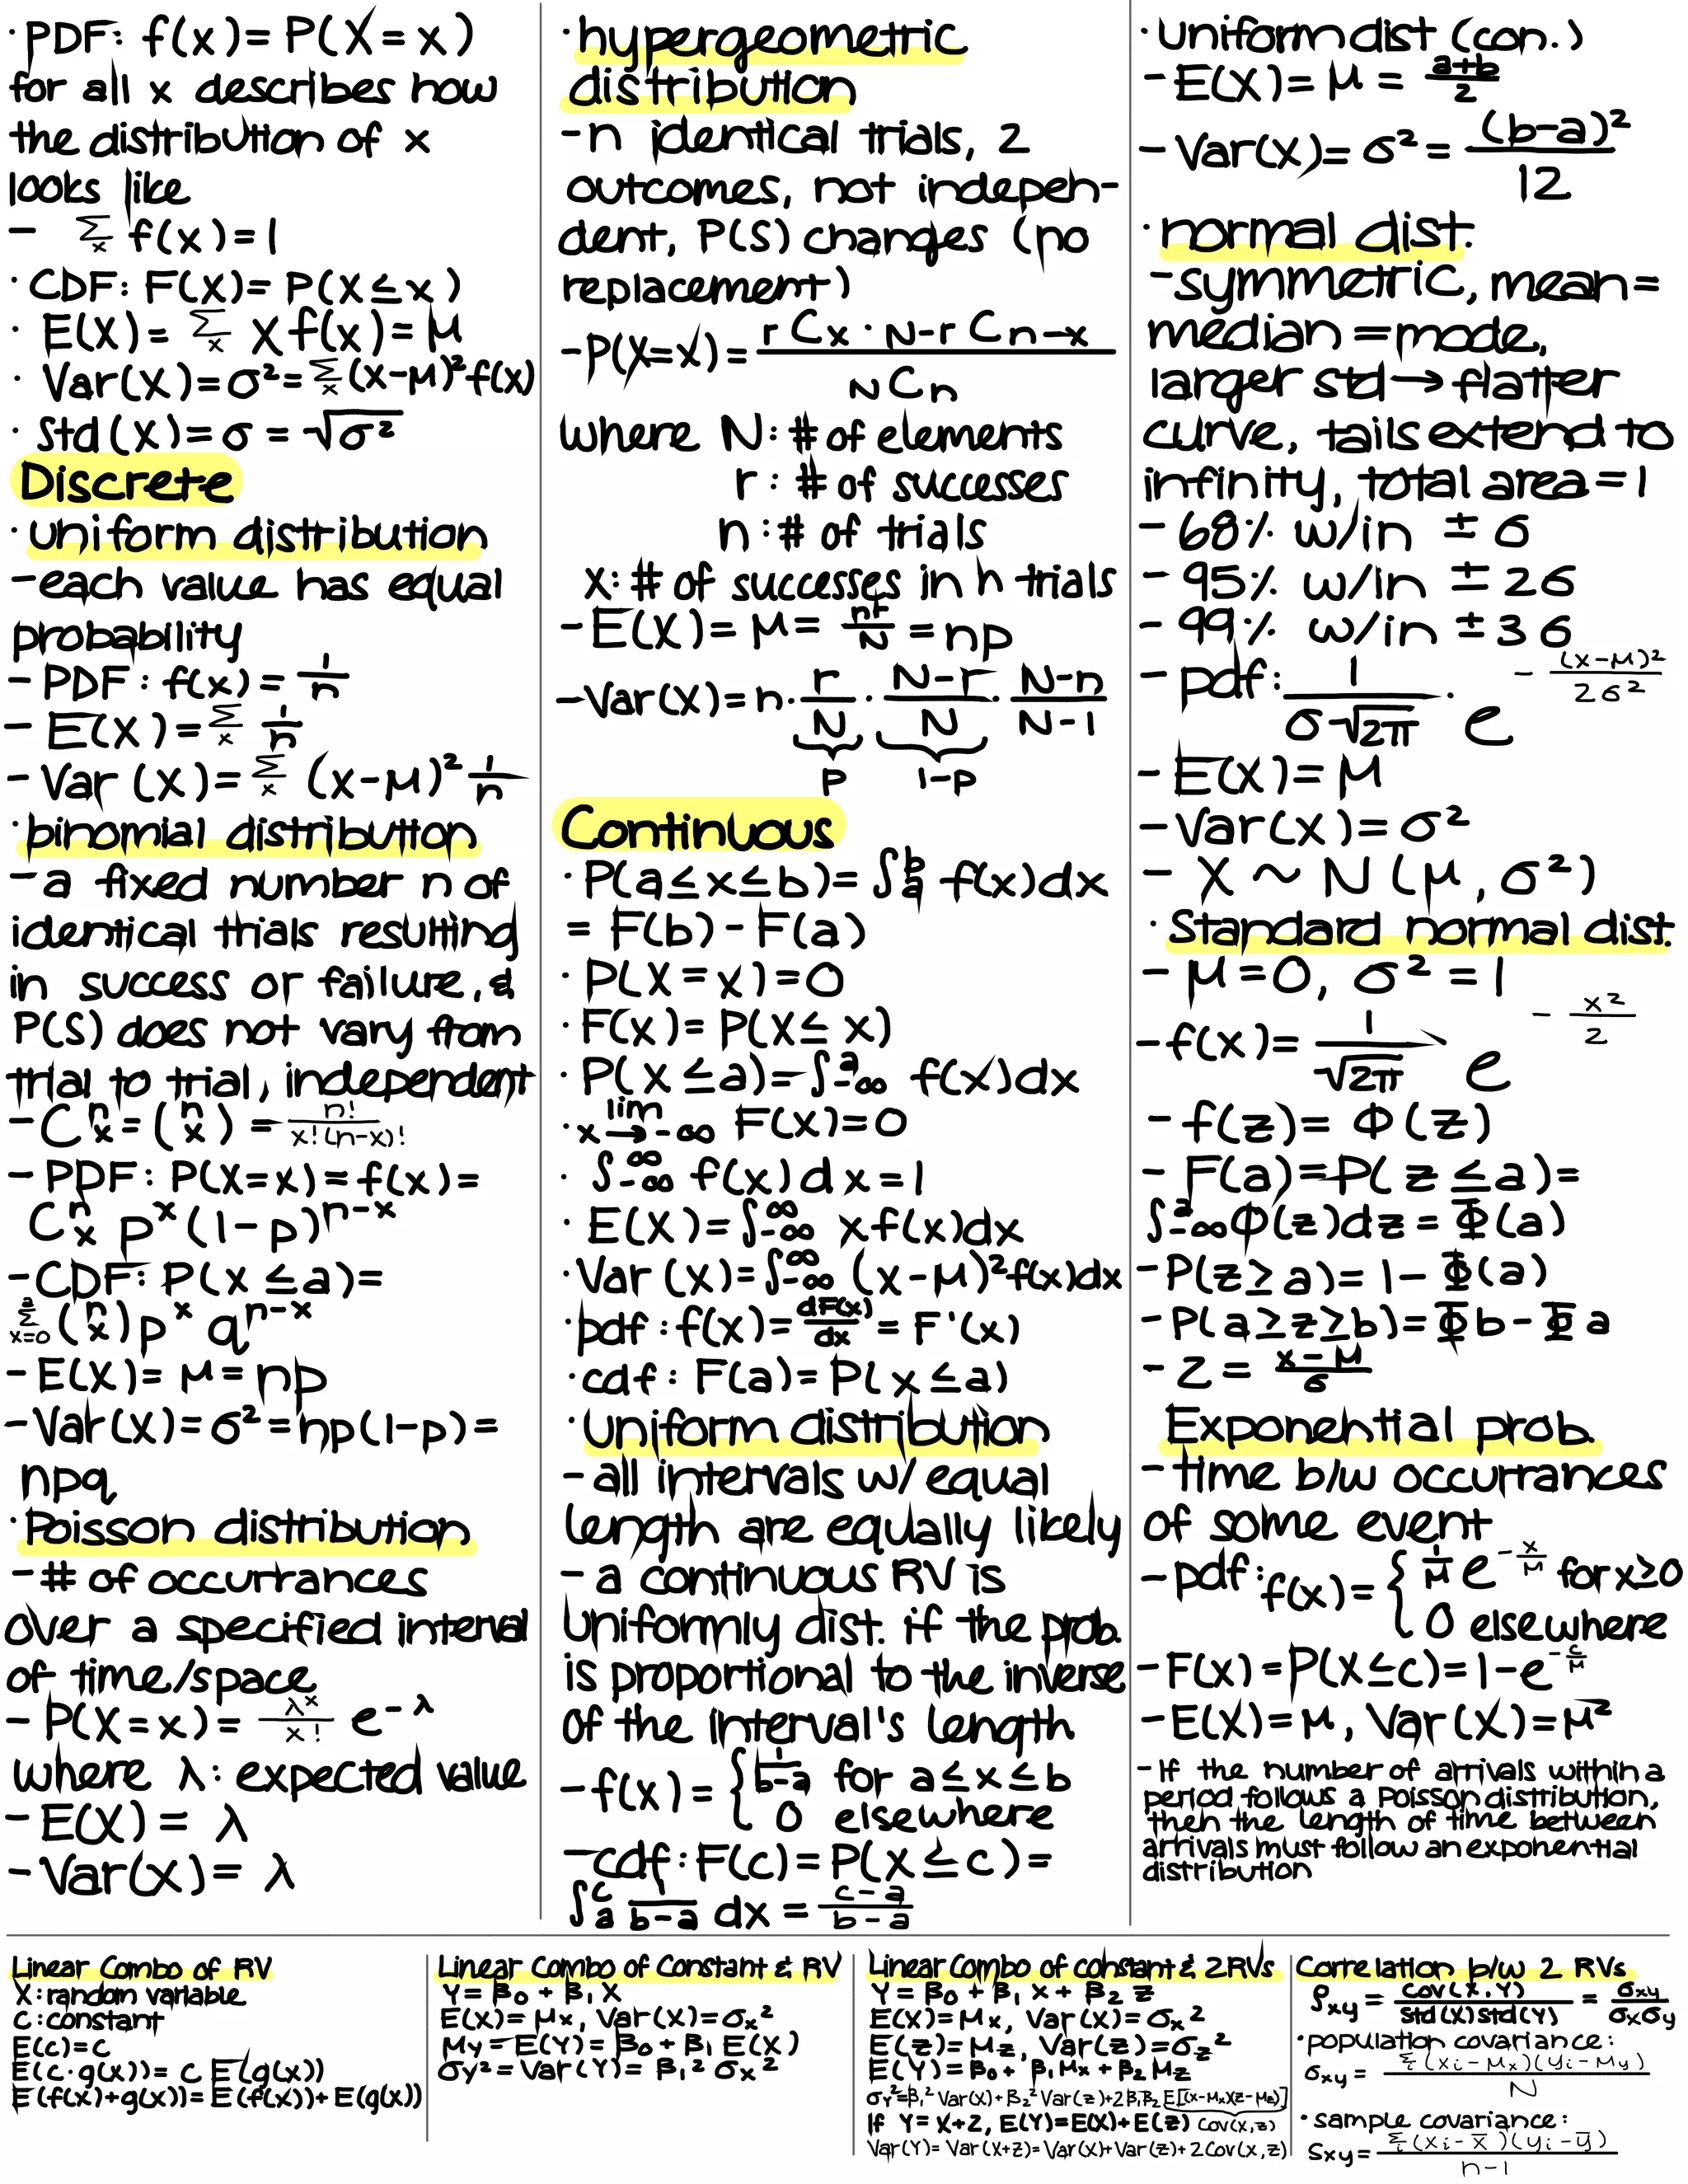 ·PDF: f(x)= P(X=x)
for all x describes how
the distribution of x
looks like
- Σx f(x)=1
·CDF: F(X)= P(X≤x)
· E(X)= Σx X f(x)= μ
· Var(X)=σ²=Σx(x-μ)²f(x)
· Std(X)=σ=√σ²
Discrete
·uniform distribution
-each value has equal
probability
- PDF: f(x)= 1/n
- E(X)=Σx 1/n
- Var (X)=Σx (x-μ)² 1/n
·binomial distribution
-a fixed number n of
identical trials resulting
in success or failure, &
P(S) does not vary from
trial to trial, independent
-C n x=(n x) = n!/x!(n-x)!
- PDF: P(X=x)=f(x)=
C n x p^x (1-p)^n-x
-CDF: P(X≤a)=
Σ a x=0 (n x) p^x q^n-x
-E(X)= μ=np
-Var(X)=σ²=np(1-p)=
npq
·Poisson distribution
-# of occurrances
over a specified interval
of time/space
- P(X=x)= λ^x/x! e^-λ
where λ: expected value
- E(X)= λ
-Var(x)= λ
·hypergeometric
distribution
-n identical trials, 2
outcomes, not indepen-
dent, P(S) changes (no
replacement)
-P(X=x)= rCx · N-rCn-x / NCn
where N:# of elements
r: # of successes
n:# of trials
x: # of successes in n trials
-E(X)= μ= nr/N =np
-Var(X)=n· r/N · N-r/N · N-n/N-1
p 1-p
Continuous
·P(a≤x≤b)= ∫ b a f(x)dx
= F(b)-F(a)
·P(X=x)=0
·F(x)= P(X≤x)
·P(X≤a)=∫ a -∞ f(x)dx
·lim x→-∞ F(X)=0
· ∫ ∞ -∞ f(x)dx=1
· E(X)=∫ ∞ -∞ xf(x)dx
·Var(X)=∫ ∞ -∞ (x-μ)²f(x)dx
·pdf: f(x)= dF(x)/dx = F'(x)
·cdf: F(a)=P(x≤a)
·uniform distribution
-all intervals w/ equal
length are equally likely
- a continuous RV is
uniformly dist. if the prob.
is proportional to the inverse
of the interval's length
-f(x)= { 1/b-a for a≤x≤b
0 elsewhere
-cdf: F(c)=P(X≤c)=
∫ c a 1/b-a dx = c-a/b-a
·Uniform dist (con.)
-E(X)= μ = a+b/2
-Var(X)= σ²= (b-a)²/12
·normal dist.
-symmetric, mean=
median=mode,
larger std→flatter
curve, tails extend to
infinity, total area=1
-68% w/in ±σ
-95% w/in ±2σ
-99% w/in ±3σ
-pdf: 1/σ√2π · e^-(x-μ)²/2σ²
-E(X)= μ
-Var(x)=σ²
- X ~ N(μ, σ²)
·Standard normal dist.
- μ=0, σ²=1
-f(x)= 1/√2π e^-x²/2
-f(z)= φ(z)
- F(a)=P(z≤a)=
∫ a -∞ φ(z)dz= Φ(a)
-P(z≥a)= 1-Φ(a)
-P(a≥z≥b)=Φb-Φa
-Z= x-μ/σ
Exponential prob.
-time b/w occurrances
of some event
-pdf: f(x)= { 1/μ e^-x/μ for x≥0
0 elsewhere
-F(x)=P(X≤c)=1-e^-c/μ
-E(X)=μ, Var(X)=μ²
-If the number of arrivals within a
period follows a Poisson distribution,
then the length of time between
arrivals must follow an exponential
distribution
Linear Combo of RV
X: random variable
C: constant
E(c)=c
E(c·g(x))= c E(g(x))
E(f(x)+g(x))= E(f(x))+E(g(x))
Linear Combo of Constant & RV
Y= β0 + β1 X
E(X)= μx, Var(X)=σx²
μy=E(Y)= β0+β1 E(X)
σy²=Var(Y)= β1² σx²
Linear Combo of constant & 2RVs
Y= β0 + β1 X+ β2 Z
E(X)=μx, Var(X)=σx²
E(z)=μz, Var(z)=σz²
E(Y)=β0+ β1μx + β2μz
σy²=β1² Var(X)+β2² Var(z)+2β1β2 E[(x-μx)(z-μz)]
If Y= X+Z, E(Y)=E(X)+E(z) Cov(x,z)
Var(Y)= Var(X+Z)=Var(X)+Var(z)+2Cov(x,z)
Correlation b/w 2 RVs
ρxy = Cov(X,Y)/Std(X)Std(Y) = σxy/σxσy
·population covariance:
σxy = Σi(xi-μx)(yi-μy)/N
·sample covariance:
Sxy= Σi(xi-x̄)(yi-ȳ)/n-1